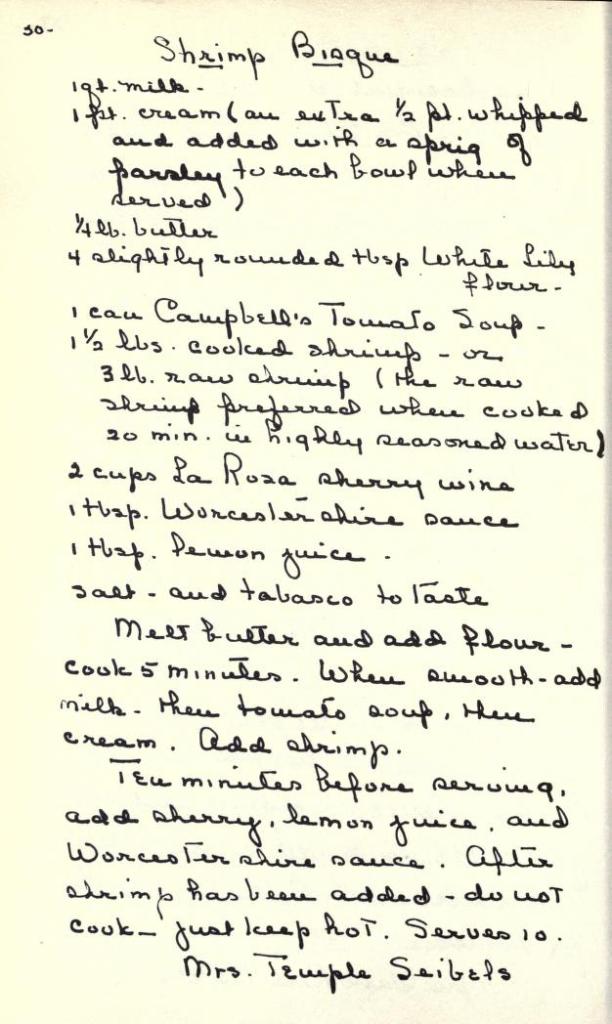 30-
Shrimp Bisque
1 qt. milk -
1 pt. cream (an extra ½ pt. whipped
and added with a sprig of
parsley to each bowl when
served)
¼ lb. butter
4 slightly rounded tbsp White Lily
flour -
1 can Campbell's Tomato Soup -
1 ½ lbs. cooked shrimp - or
3 lb. raw shrimp (the raw
shrimp preferred when cooked
20 min. in highly seasoned water)
2 cups La Rosa sherry wine
1 tbsp. Worcestershire sauce
1 tbsp. lemon juice .
salt - and tabasco to taste
Melt butter and add flour -
cook 5 minutes. When smooth - add
milk - then tomato soup, then
cream. Add shrimp.
Ten minutes before serving,
add sherry, lemon juice, and
Worcestershire sauce. After
shrimp has been added - do not
cook - just keep hot. Serves 10.
Mrs. Temple Seibels